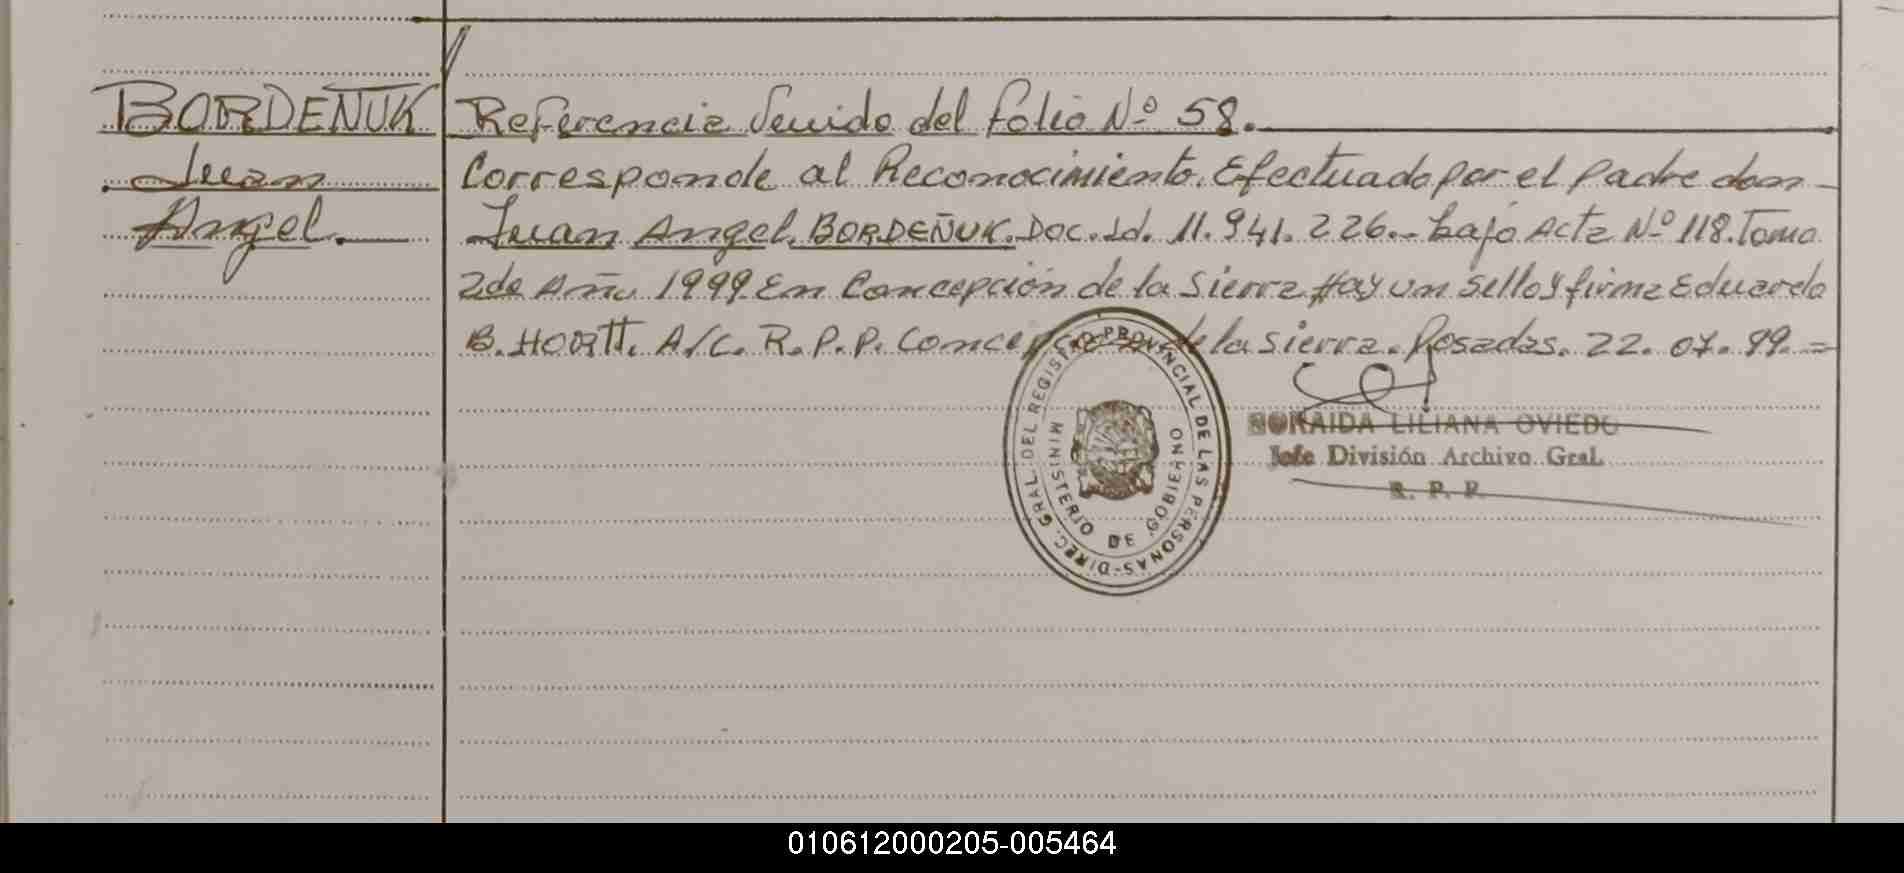 BORDEÑUK
Juan
Angel.
Referencia Venido del folio Nº 58.
Corresponde al Reconocimiento. Efectuado por el padre don
Juan Angel. BORDEÑUK. Doc. Id. 11.941.226.- bajo Acta Nº 118. Tomo
2 de Año 1999 En Concepción de la Sierra Hay un sello y firma Eduardo
B. A/C. R.P.P. Concepción de la Sierra. Posadas. 22.07.99.=
DIREC. GRAL. DEL REGISTRO PROVINCIAL DE LAS PERSONAS-
MINISTERIO DE GOBIERNO
SORAIDA LILIANA OVIEDO
Jefe División Archivo Gral.
R. P. P.
010612000205-005464